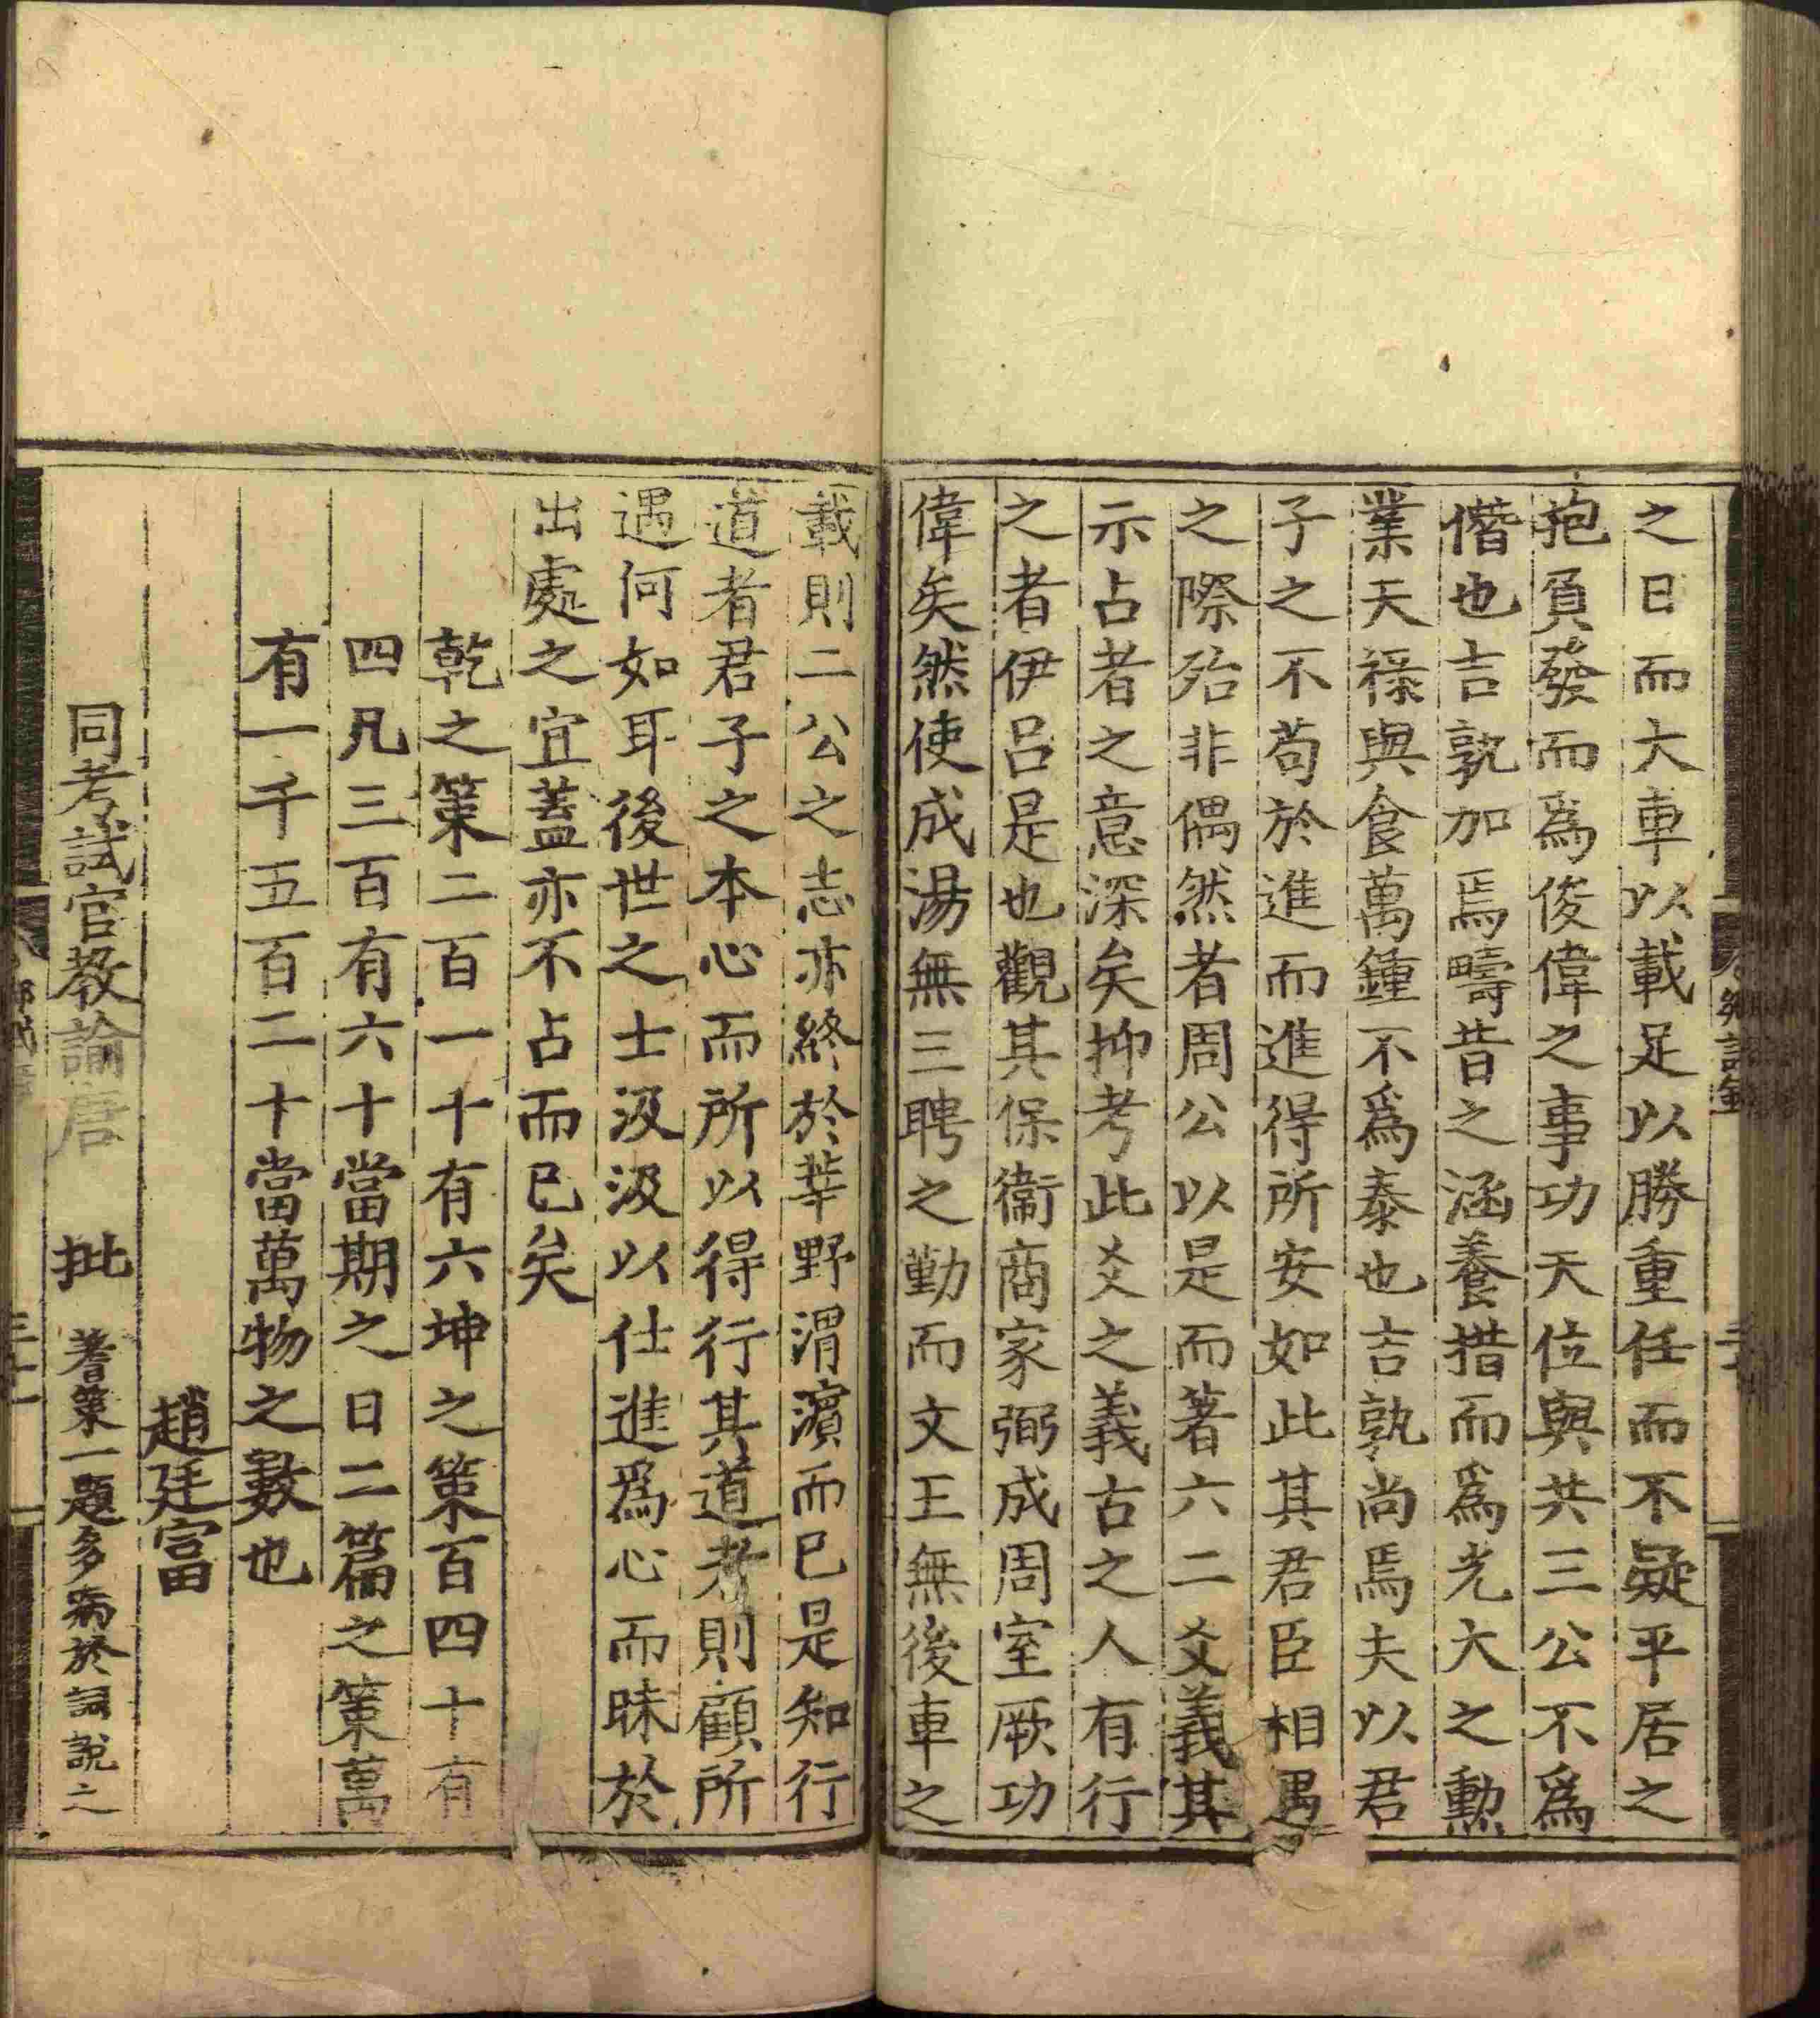 之日而大車以載足以勝重任而不疑平居之
抱負發而爲俊偉之事功天位與共三公不爲
僭也吉孰加焉疇昔之涵養措而爲光大之勳
業天祿與食萬鍾不爲泰也吉孰尚焉夫以君
子之不苟於進而進得所安如此其君臣相遇
之際殆非偶然者周公以是而著六二爻義其
示占者之意深矣抑考此爻之義古之人有行
之者伊呂是也觀其保衞商家弼成周室厥功
偉矣然使成湯無三聘之勤而文王無後車之
載則二公之志亦終於莘野渭濱而已是知行
道者君子之本心而所以得行其道者則顧所
遇何如耳後世之士汲汲以仕進爲心而昧於
出處之宜蓋亦不占而已矣
乾之策二百一十有六坤之策百四十有
四凡三百有六十當期之日二篇之策萬
有一千五百二十當萬物之數也
趙廷富
同考試官教諭唐 批 蓍策一題多病於詞說之